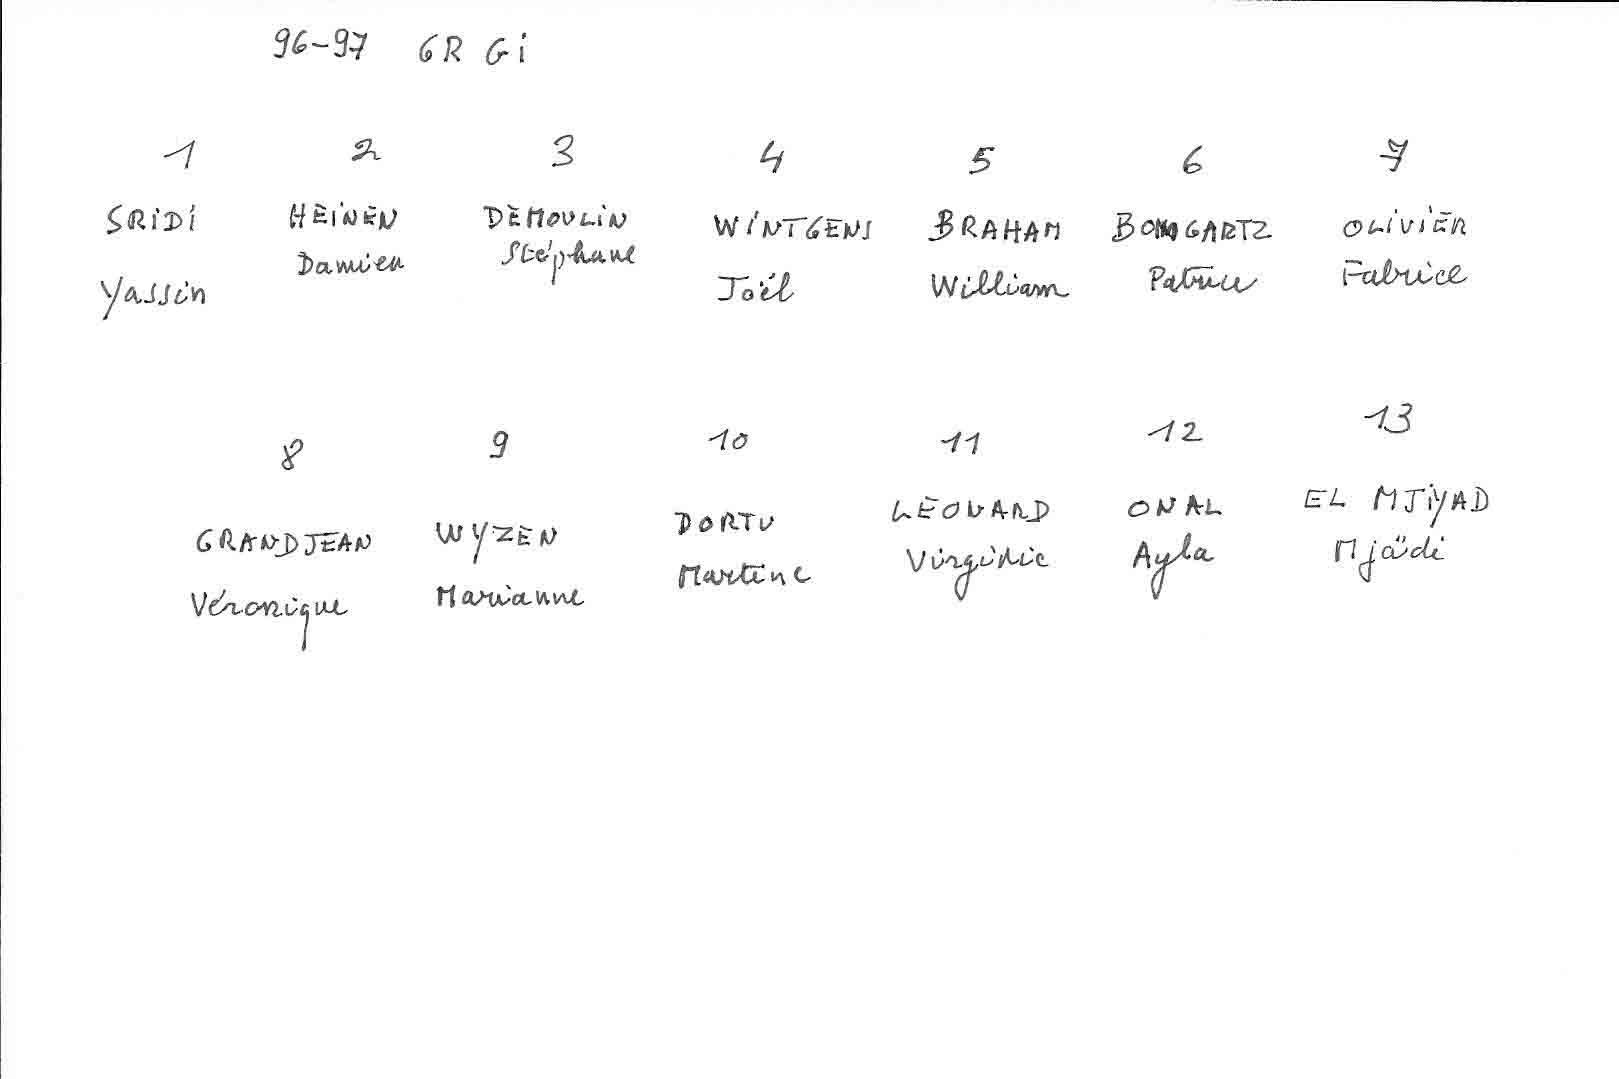 96-97 6R Gi
1 2 3 4 5 6 7
SRIDI HEINEN DEMOULIN WINTGENS BRAHAM BOMGARTZ OLIVIER
Yassin Damien Stéphane Joël William Patrice Fabrice
8 9 10 11 12 13
GRANDJEAN WYZEN DORTU LEONARD ONAL EL MJIYAD
Véronique Marianne Martine Virginie Ayla Mjädi